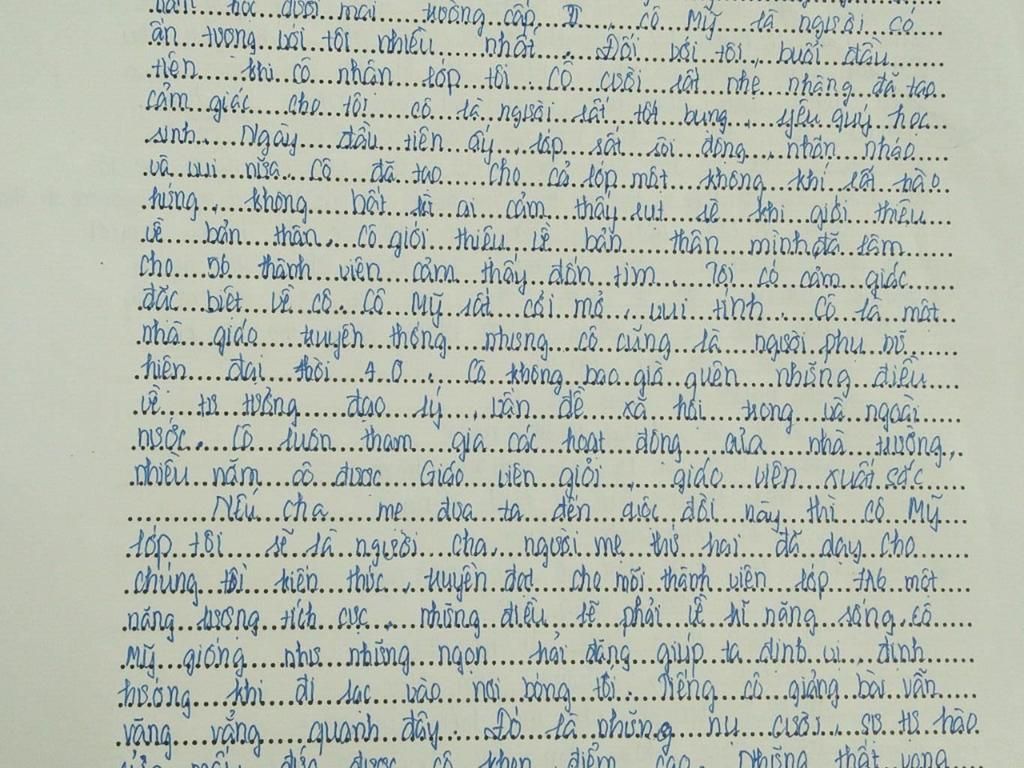 năm học dưới mái trường cấp II, cô Mỹ là người có
ấn tượng với tôi nhiều nhất. Đối với tôi, buổi đầu
tiên khi cô nhận lớp tôi. Cô cười rất nhẹ nhàng đã tạo
cảm giác cho tôi cô là người rất tốt bụng, yêu quý học
sinh. Ngày đầu tiên ấy, lớp rất sôi động, nhộn nháo
và vui nữa. Cô đã tạo cho cả lớp một không khí rất hào
hứng, không bất kì ai cảm thấy rụt rè khi giới thiệu
về bản thân. Cô giới thiệu về bản thân mình đã làm
cho 56 thành viên cảm thấy đốn tim. Tôi có cảm giác
đặc biệt về cô. Cô Mỹ rất cởi mở, vui tính. Cô là một
nhà giáo truyền thống nhưng cô cũng là người phụ nữ
hiện đại thời 4.0. Cô không bao giờ quên những điều
về tư tưởng đạo lý, vấn đề xã hội trong và ngoài
nước. Cô luôn tham gia các hoạt động của nhà trường,
nhiều năm cô được Giáo viên giỏi, giáo viên xuất sắc
Nếu cha mẹ đưa ta đến cuộc đời này thì cô Mỹ
lớp tôi sẽ là người cha, người mẹ thứ hai đã dạy cho
chúng tôi kiến thức, truyền đạt cho mỗi thành viên lớp 7A6 một
năng lượng tích cực, những điều lẽ phải về kĩ năng sống. Cô
Mỹ giống như những ngọn hải đăng giúp ta định vị, định
hướng khi đi lạc vào nơi bóng tối. Tiếng cô giảng bài vẫn
văng vẳng quanh đây. Đó là những nụ cười, sự tự hào
đứa được cô khen điểm cao. Những thất vọng